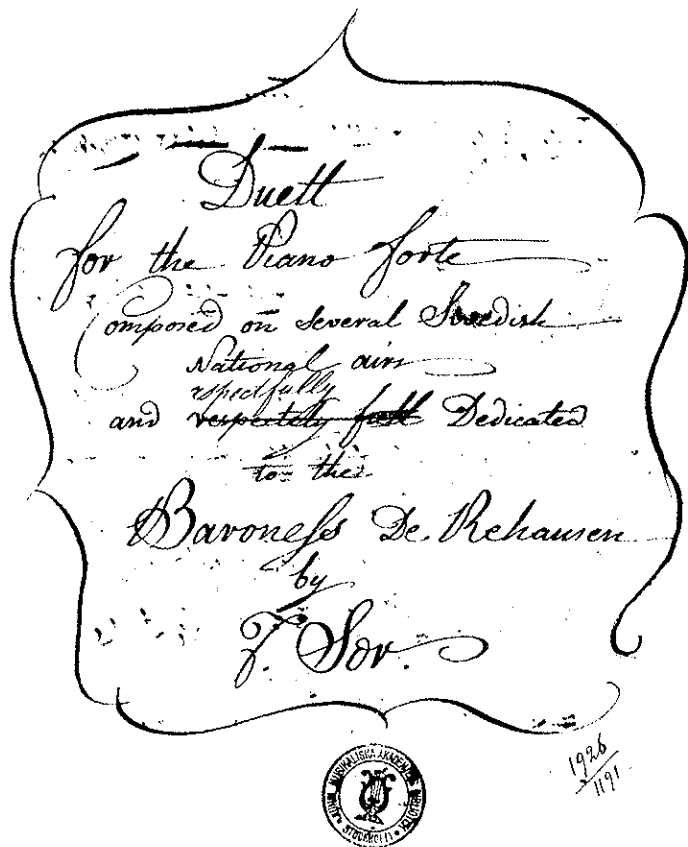 Duett
for the Piano forte
Composed on several Swedish
National airs
respectfully
and respectely full Dedicated
to the
Baroness De Rehausen
by
F. Sor.
KUNGL. MUSIKALISKA AKADEMIENS BIBLIOTEK
STOCKHOLM
1926
1191